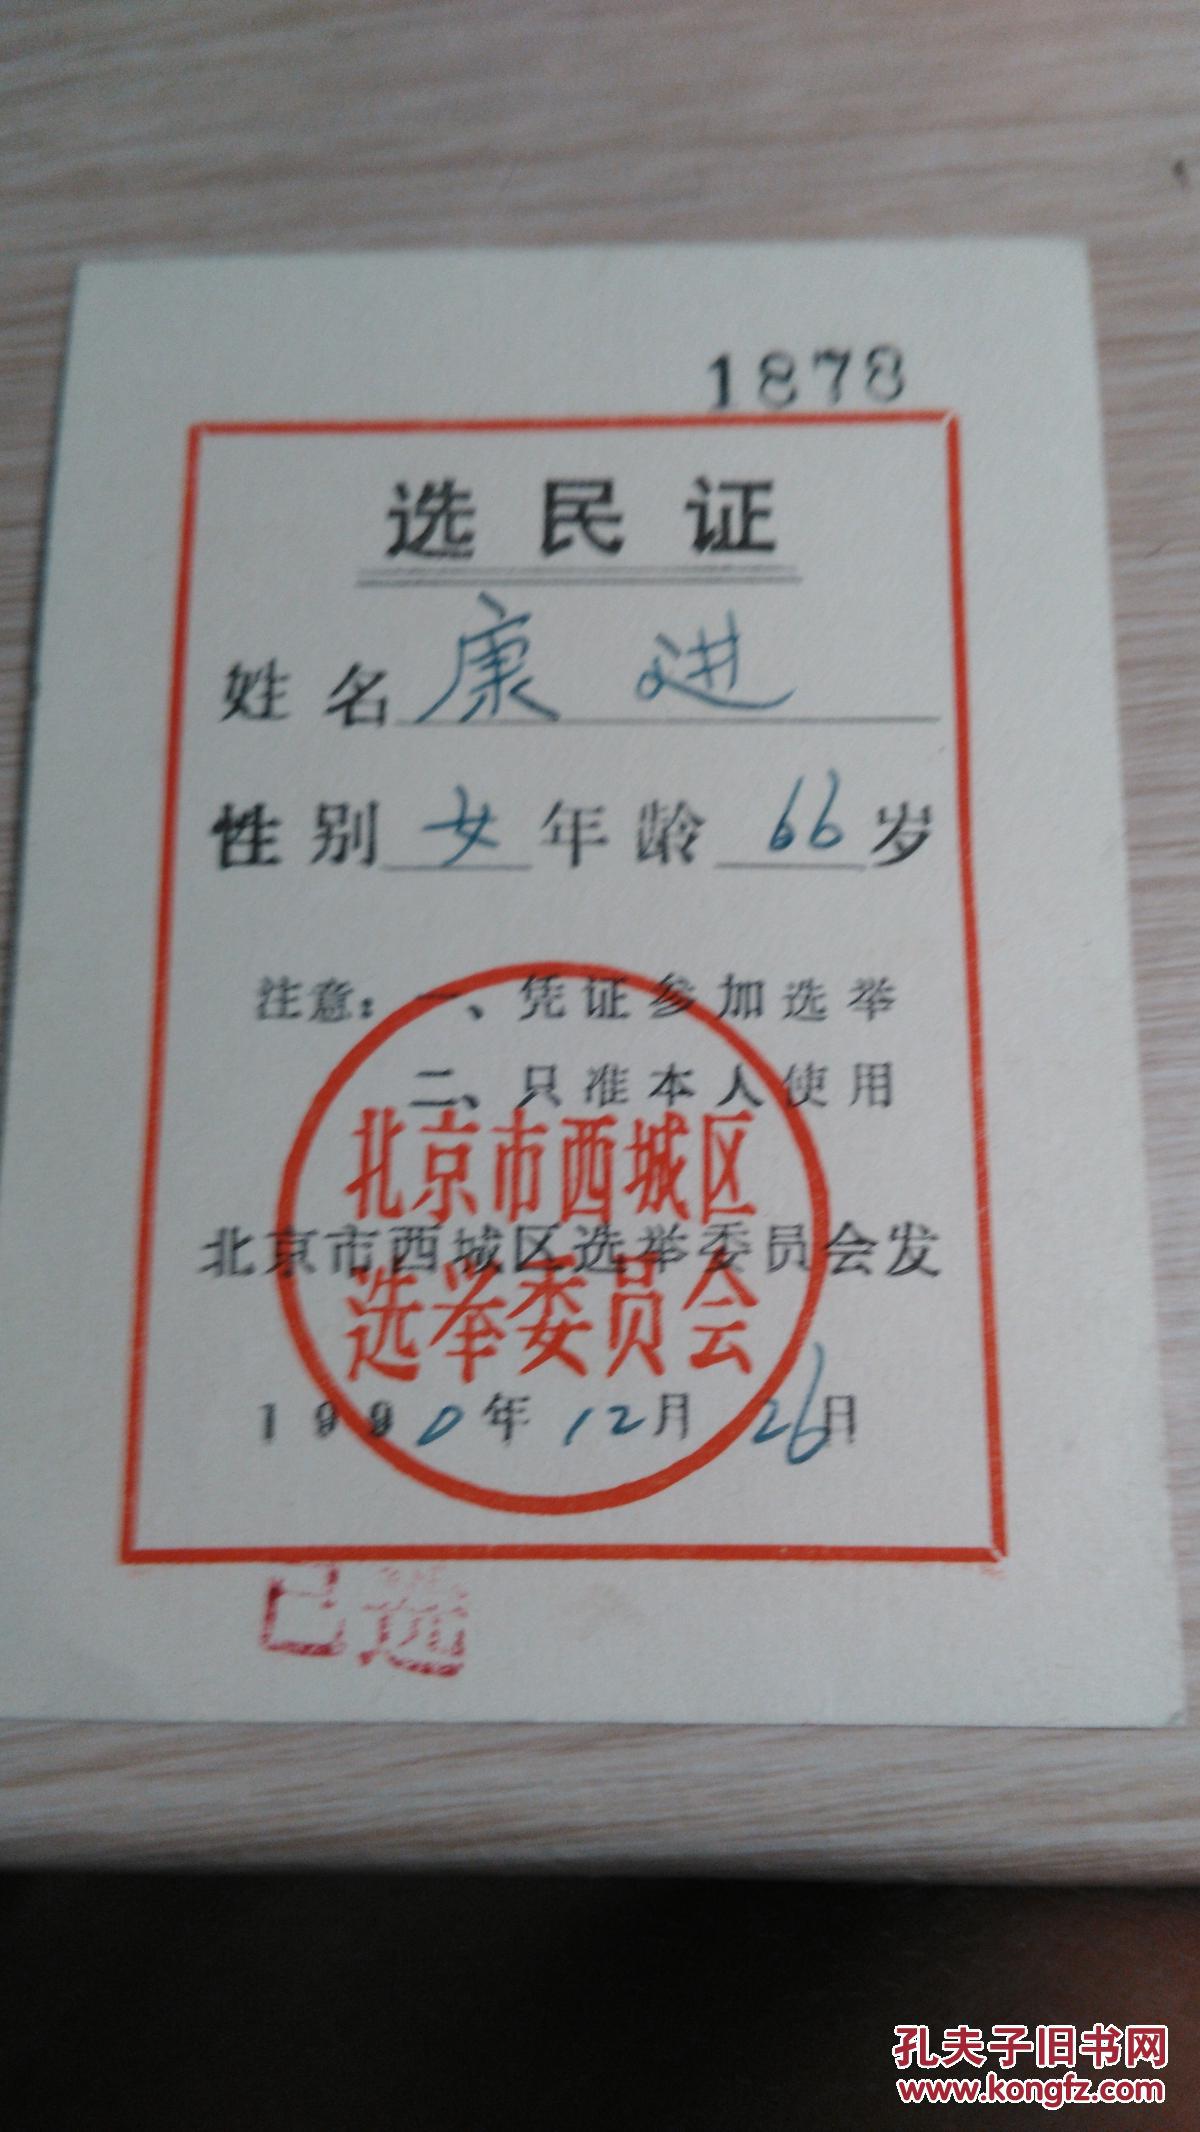 1878
选民证
姓名 康进
性别 女 年龄 66 岁
注意：一、凭证参加选举
二、只准本人使用
北京市西城区
北京市西城区选举委员会发
选举委员会
1990年12月26日
已选
孔夫子旧书网
www.kongfz.com